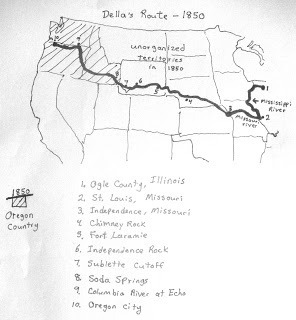 Della's Route - 1850
unorganized
territories
in 1850
10
9
8
7
6
5
4
3
2
1
Mississippi
River
Missouri
River
1850
Oregon
Country
1. Ogle County, Illinois
2. St. Louis, Missouri
3. Independence, Missouri
4. Chimney Rock
5. Fort Laramie
6. Independence Rock
7. Sublette Cutoff
8. Soda Springs
9. Columbia River at Echo
10. Oregon City